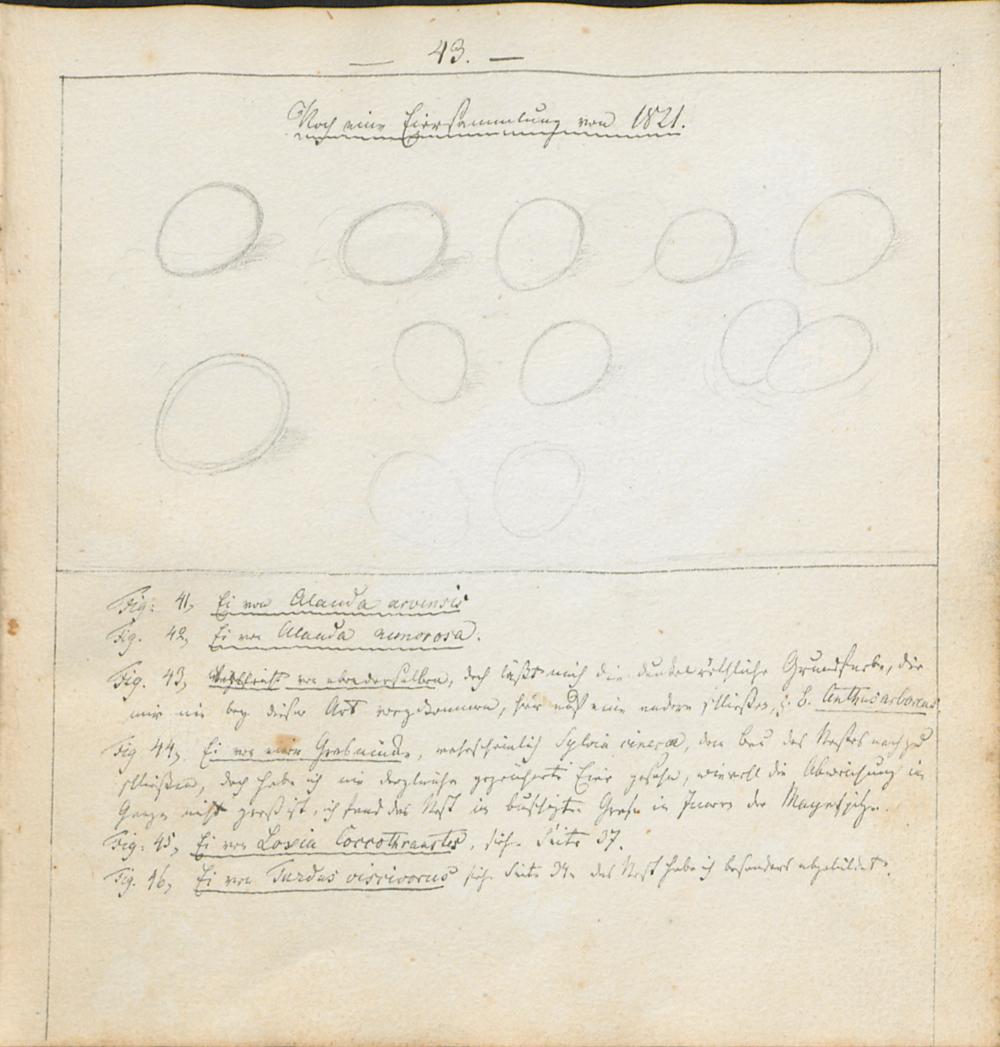 — 43. —
Noch eine Eiersammlung von 1821.
Fig: 41, Ei von Alauda arvensis
Fig. 42, Ei von Alauda nemorosa.
Fig. 43, von ebenderselben, doch läßt mich die dunkel röthliche Grundfarbe, die
mir nie bey dieser Art vorgekommen, hier auf eine andere schließen, z. B. Anthus arboreus
Fig 44, Ei von einer Grasmücke, wahrscheinlich Sylvia cinerea, dem Bau des Nestes nach zu
schließen, doch habe ich nie dergleichen gezeichnete Eier gesehen, wiewohl die Abweichung im
Ganzen nicht groß ist, ich fand das Nest in Grase im Innern der
Fig: 45, Ei von Loxia Coccothraustes, sieh. Seite 37.
Fig. 46, Ei von Turdus viscivorus sieh. Seite 34. das Nest habe ich besonders abgebildet.